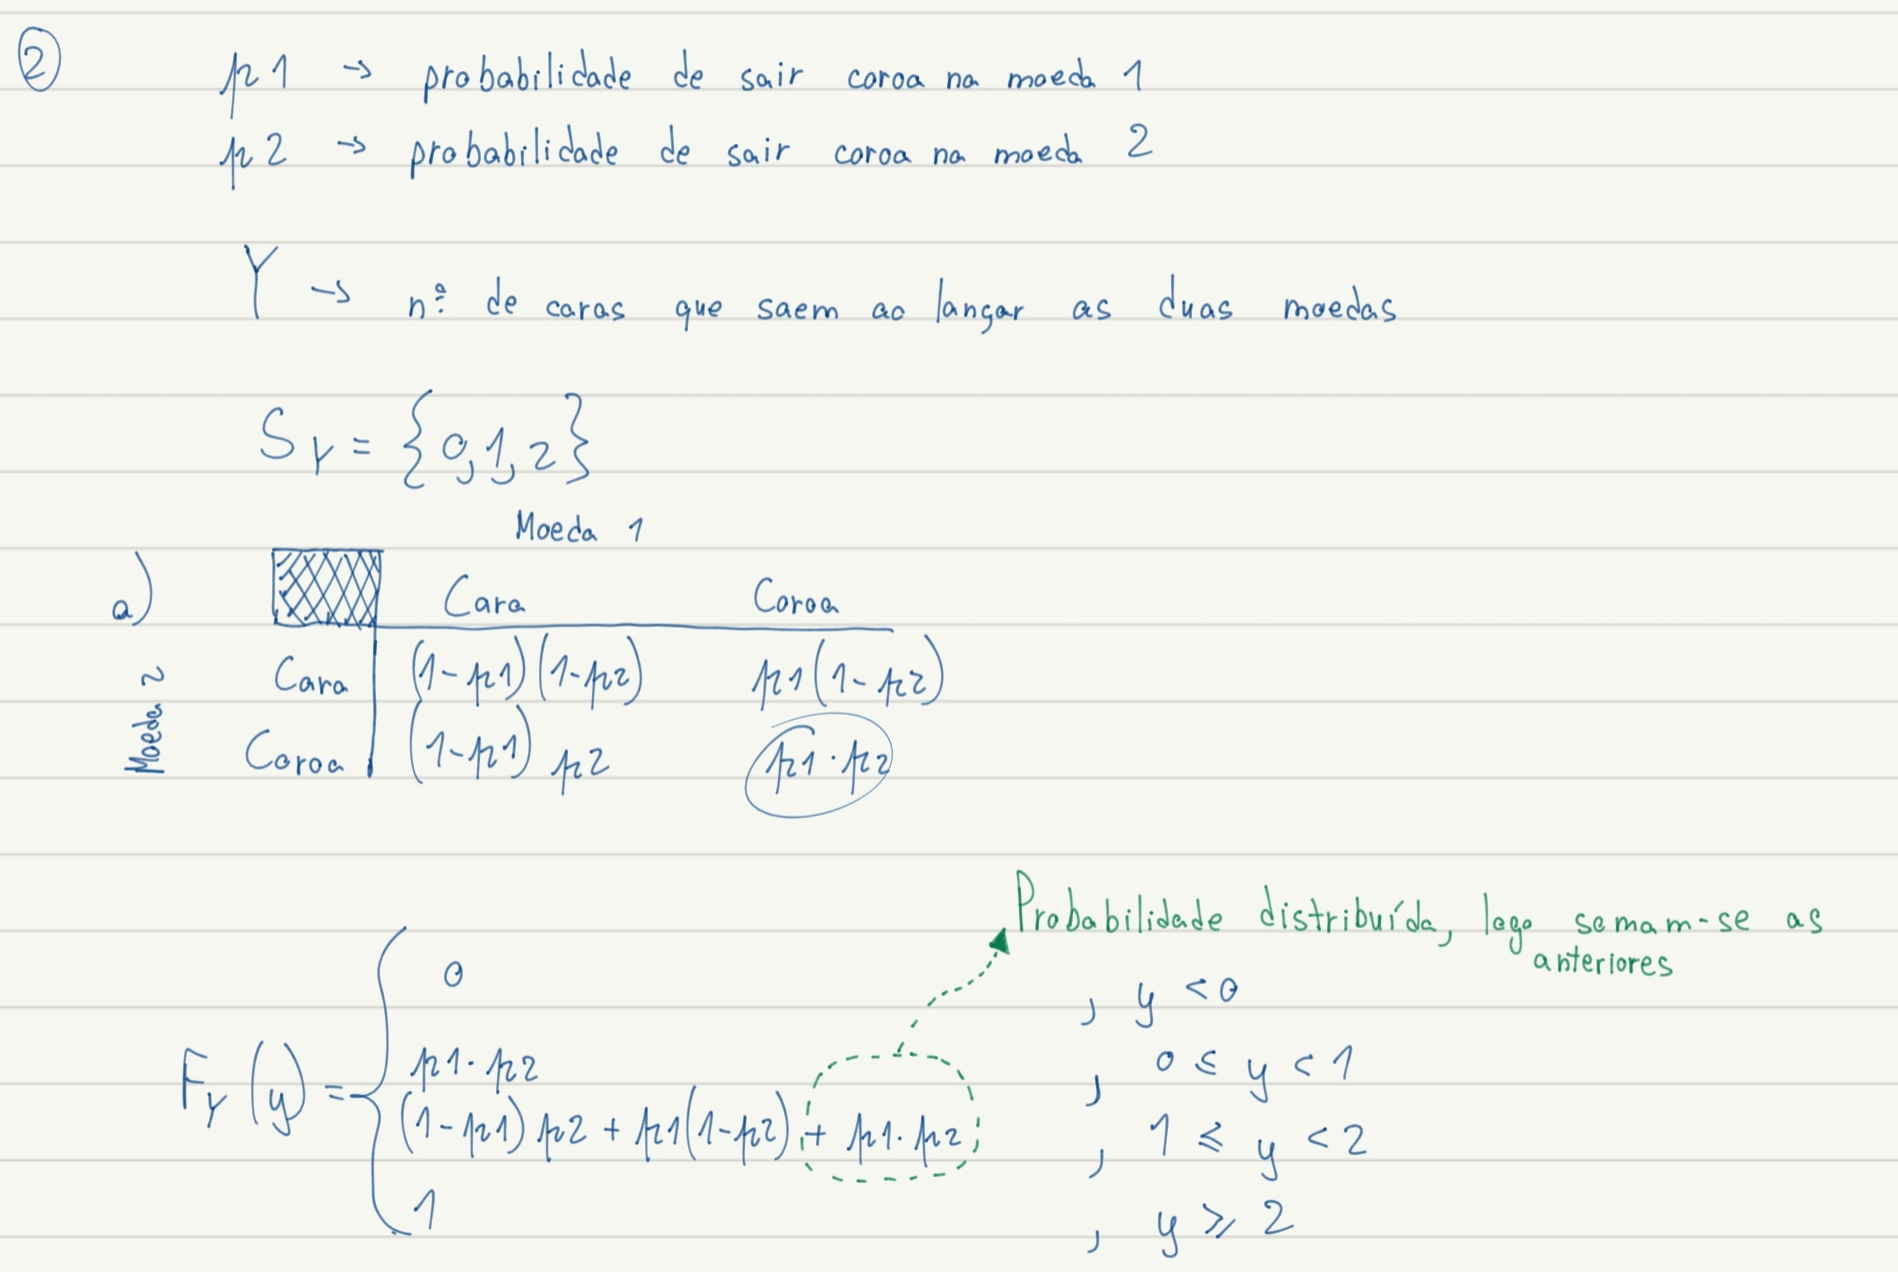 2
p1 → probabilidade de sair coroa na moeda 1
p2 → probabilidade de sair coroa na moeda 2
Y → nº de caras que saem ao lançar as duas moedas
S_Y = {0,1,2}
Moeda 1
a) Cara Coroa
Moeda 2
Cara (1-p1)(1-p2) p1(1-p2)
Coroa (1-p1) p2 p1·p2
Probabilidade distribuída, logo somam-se as
anteriores
0 , y < 0
F_Y(y) = p1·p2 , 0 ≤ y < 1
(1-p1) p2 + p1(1-p2) + p1·p2 , 1 ≤ y < 2
1 , y ≥ 2